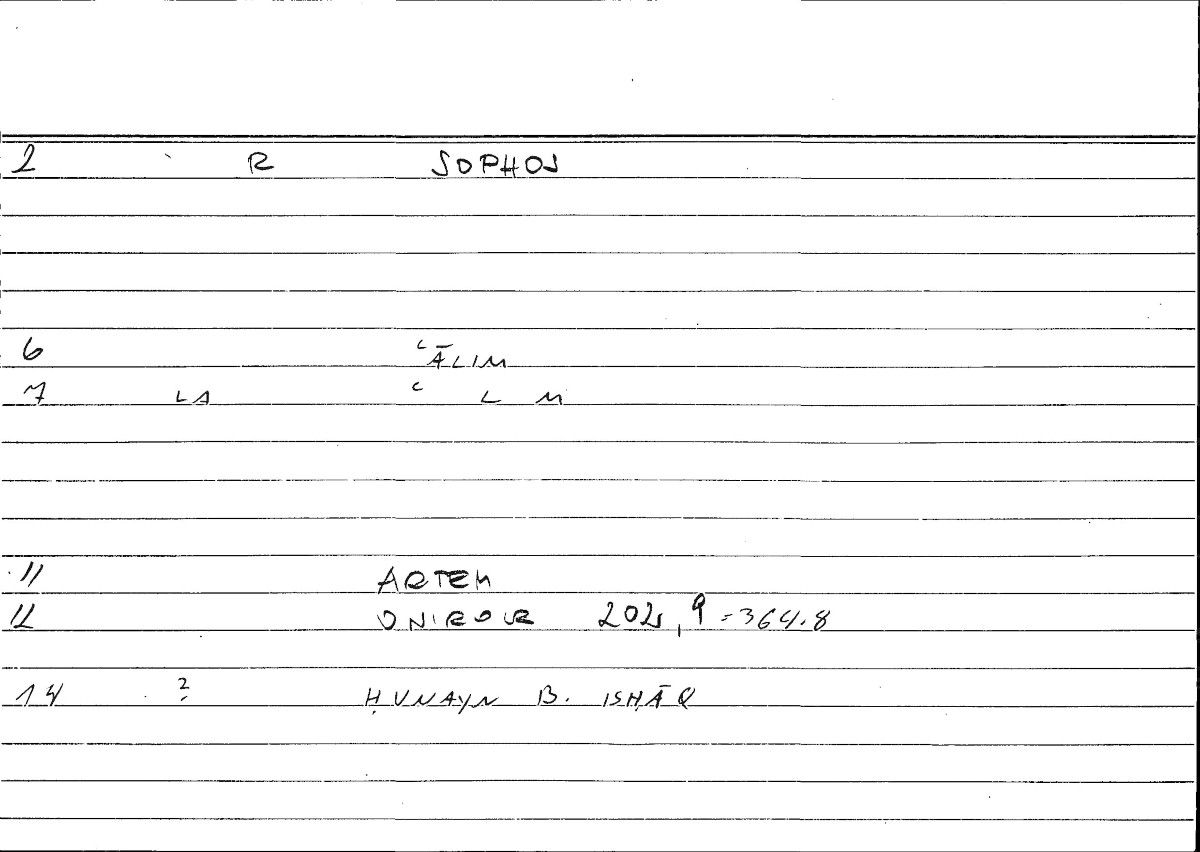 2 R SOPHOS
6 ʿĀLIM
7 LA ʿ L M
11 ARTEM
12 ONIROCR 202,9 = 364.8
14 ? ḤUNAYN B. ISḤĀQ